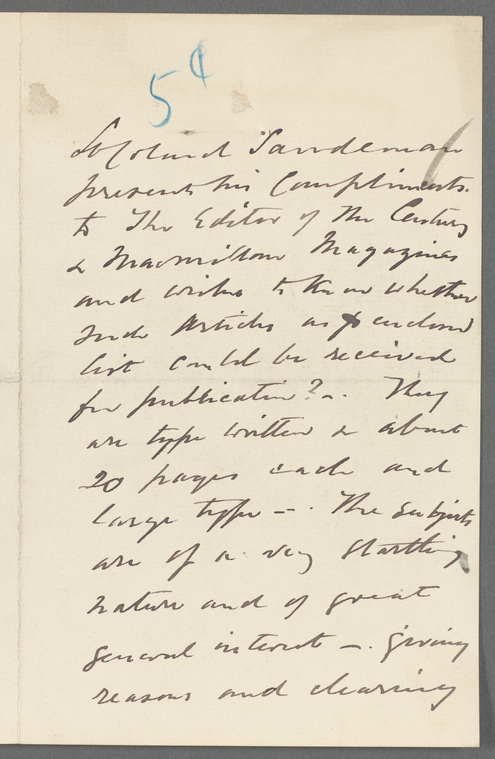 5d
Lt Colonel Sandeman
presents his Compliments
to The Editor of The Century
& Macmillan Magazines
and wishes to know whether
such articles as enclosed
list could be received
for publication? -. They
are type written & about
20 pages each and
large type -. The subjects
are of a very startling
nature and of great
general interest -. giving
reasons and clearing